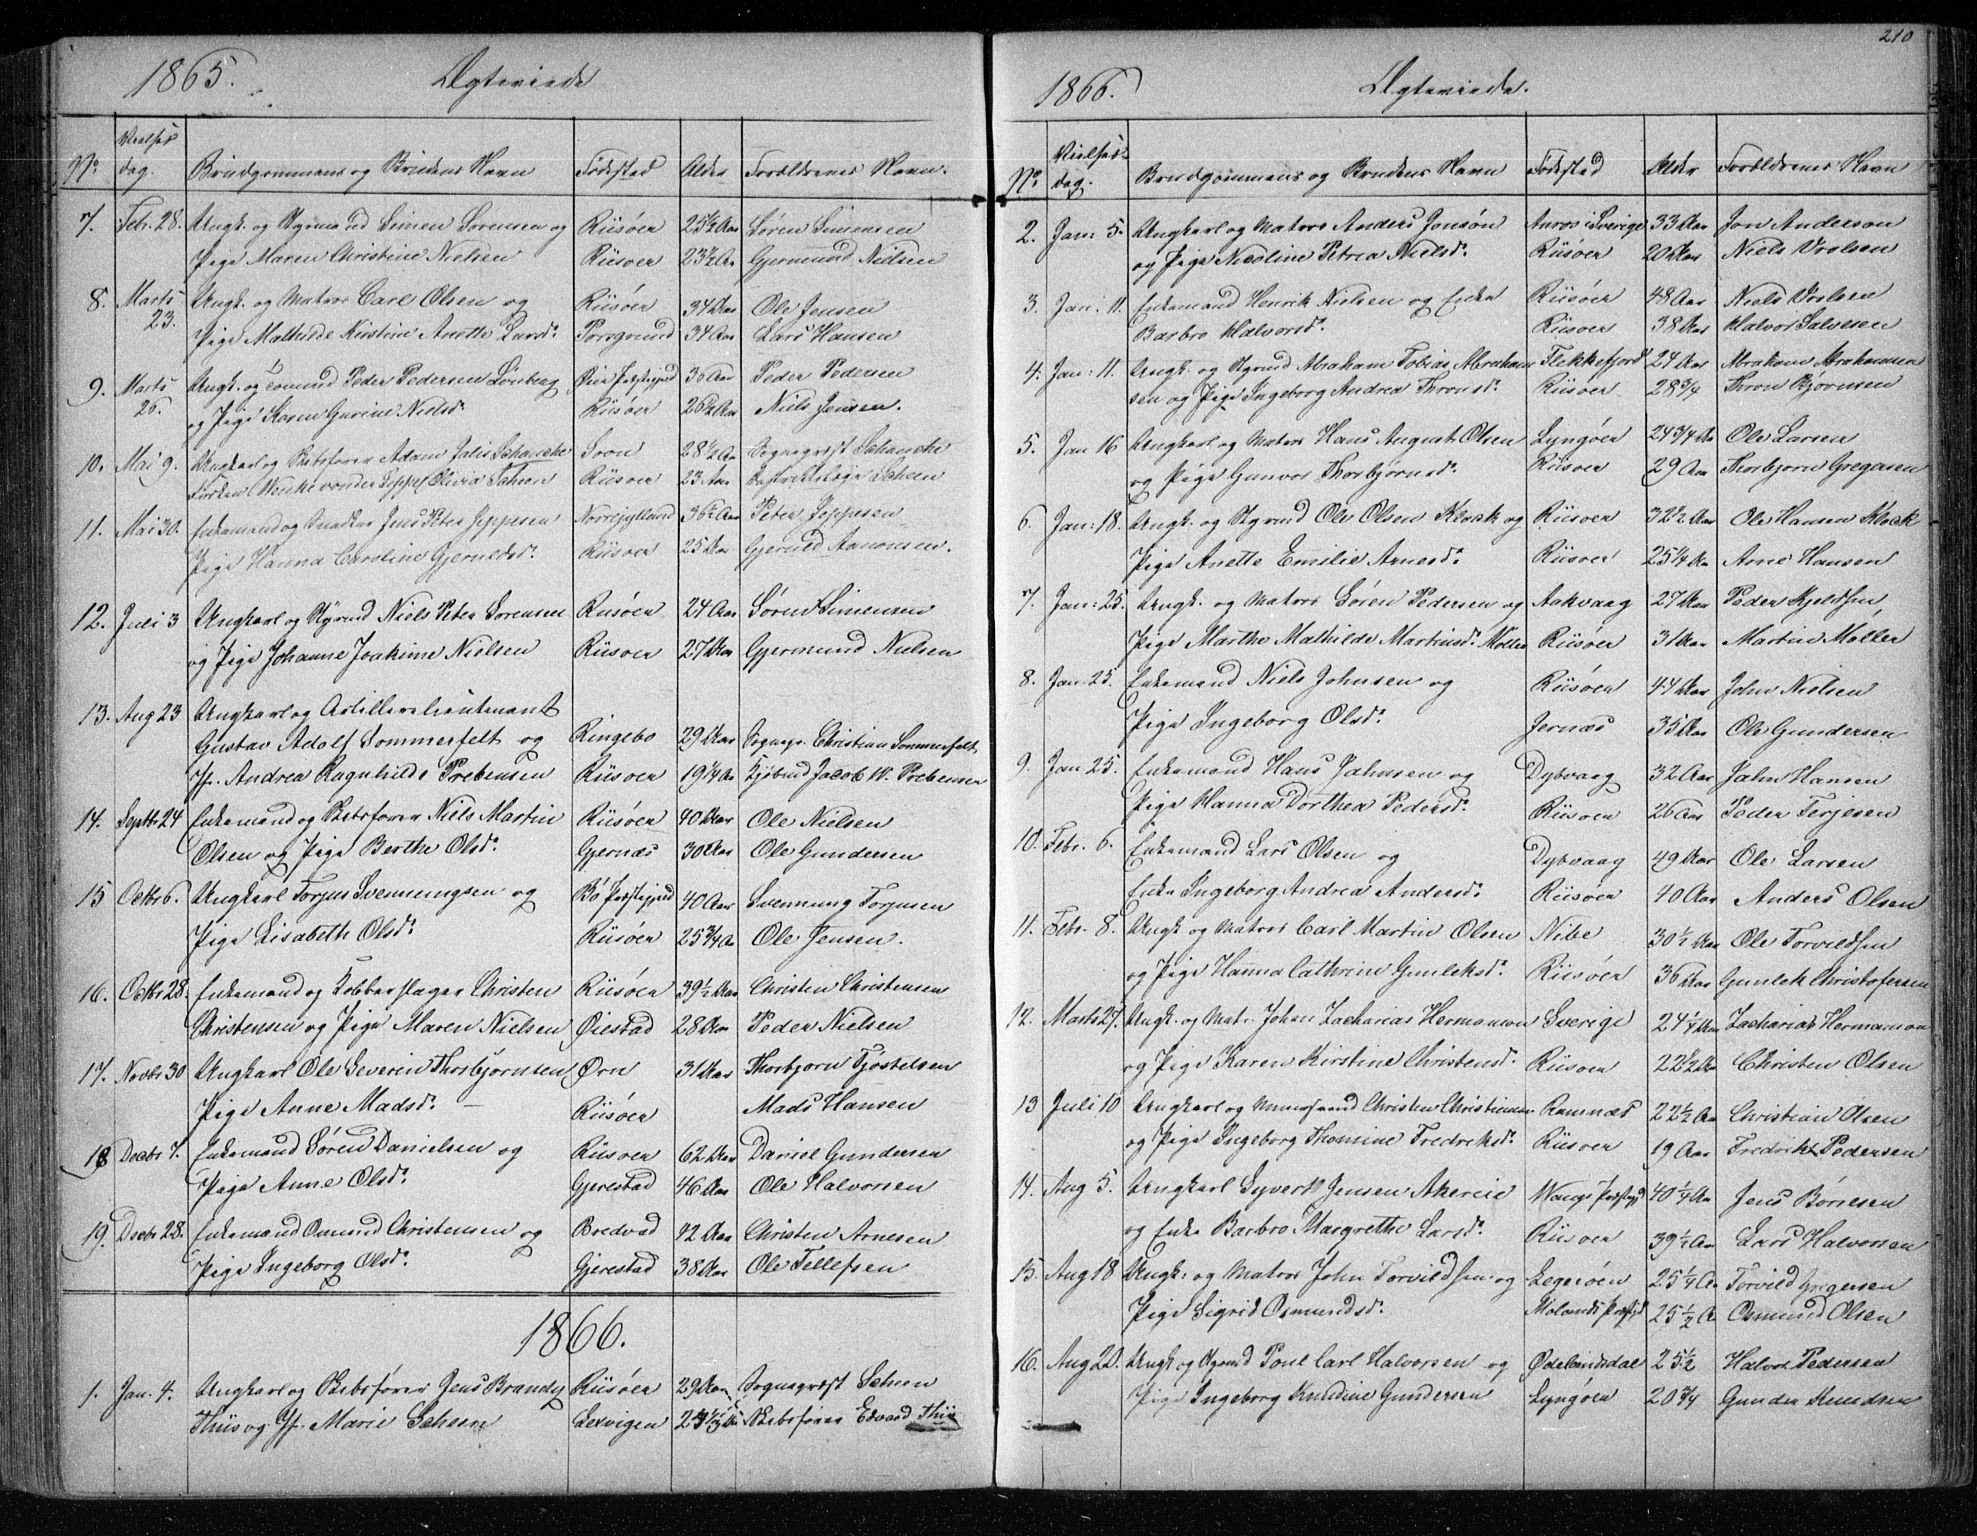 1865. Ægteviede
No. Vielses dag. Brudgommens og Brudens Navn Fødested Alder Forældrenes Navn.
7. Febr. 28. Ungk. og Styrmand Simen Sørensen og Riisøer 25½ Aar Søren Simensen
Pige Maren Christine Nielsen Riisøer 23½ Aar Gjermund Nielsen
8. Marts 23. Ungk. og Matros Carl Olsen og Riisøer 34 Aar Ole Jensen
Pige Mathilde Kirstine Anette Larsd. Porsgrund 34 Aar Lars Hansen
9. Marts 26. Ungk. og Peder Pedersen Lønberg 36 Aar Peder Pedersen
og Pige Karen Gurine Nielsd. Riisøer 26¾ Aar Niels Jensen.
10. Mai 9. Ungkarl og Skibsfører Adam Julis Schancke Soon 28½ Aar Sogneprest Schancke
Frøken Wenke von der Lippe Olivia Scheen Riisøer 23 Aar Scheen
11. Mai 30. Enkemand og Snedker Jens Peter Jeppesen Nørrejylland 36½ Aar Peter Jeppesen
Pige Hanna Caroline Gjeruldsd. Riisøer 25 Aar Gjeruld Aanonsen.
12. Juli 3 Ungkarl og Styrmd Niels Peter Sørensen Riisøer 24 Aar Søren Simensen
og Pige Johanne Joakime Nielsen Riisøer 27 Aar Gjermund Nielsen
13. Aug 23 Ungkarl og Artillerielieutenant
Gustav Adolf Sommerfelt og Ringebo 29 Aar Sognepr. Christian Sommerfelt
Jfr. Andrea Ragnhilde Prebensen Riisøer 19¼ Aar Kjøbmd Jacob W. Prebensen
14. Septbr 24 Enkemand og Skibsfører Niels Martin Riisøer 40 Aar Ole Nielsen
Olsen og Pige Berthe Olsd. Gjernæs 30 Aar Ole Gundersen
15 Octbr 6. Ungkarl Torjus Svennungsen og Bø Præstegjeld 40 Aar Svennung Torjusen
Pige Lisabeth Olsd. Riisøer 25¾ Aar Ole Jensen.
16. Octbr 28. Enkemand og Kobberslager Christen Riisøer 39½ Aar Christen Christensen
Christensen og Pige Maren Nielsen Øiestad 28 Aar Peder Nielsen
17. Novbr 30 Ungkarl Ole Severin Thorbjørnsen Ørn 31 Aar Thorbjørn Tjostelsen
Pige Anne Madsd. Riisøer Mads Hansen
18 Decbr 7. Enkemand Søren Danielsen og Riisøer 62 Aar Daniel Gundersen
Pige Anne Olsd. Gjerestad 46 Aar Ole Halvorsen
19. Decbr 28. Enkemand Osmund Christensen og Bredvad 42 Aar Christen Arnesen
Pige Ingeborg Olsd. Gjerestad 38 Aar Ole Tellefsen
1866.
1. Jan. 4. Ungkarl og Skibsfører Jens Brandy Riisøer 29 Aar Sogneprest Scheen
Thiis og Jfr. Marie Scheen Ledvigen Aar Skibsfører Edvard Thiis
210
1866. Ægteviede.
No. Vielsesdag. Brudgommens og Brudens Navn Fødested Alder Forældrenes Navn
2. Jan: 5. Ungkarl og Matros Anders Jonsøn i Sverige 33 Aar Jon Anderson
og Pige Nicoline Petrea Nielsd. Riisøer 20 Aar Niels Vrolsen
3. Jan: 11. Enkemand Henrik Nielsen og Enke Riisøer 48 Aar Niels Vrolsen
Barbro Halvorsd. Riisøer 38 Aar Halvor Salvesen
4. Jan: 11. Ungk. og Styrmd Abraham Tobias Abraham Flekkefjord 24 Aar Abraham Abrahamsen
sen og Pige Ingeborg Andrea Thronsd. Riisøer 28¾ Thron Bjørnsen
5. Jan 16 Ungkarl og Matros Hans August Olsen Lyngøer 24¾ Aar Ole Larsen
og Pige Gunvor Thorbjørnsd. Riisøer 29 Aar Thorbjørn Gregersen
6. Jan: 18. Ungk. og Styrmd Ole Olsen Klock og Riisøer 32½ Aar Ole Hansen Klock
Pige Anette Emilie Arnesd. Riisøer 25¼ Aar Arne Hansen
7. Jan: 25. Ungk. og Matros Søren Pedersen og Askvaag 27 Aar Peder Kjeldsen
Pige Marthe Mathilde Martinsd. Møller Riisøer 31 Aar Martin Møller
8. Jan: 25. Enkemand Niels Johnsen og Riisøer 44 Aar John Nielsen
Pige Ingeborg Olsd. Jernæs 35 Aar Ole Gundersen
9. Jan 25. Enkemand Hans Jahnsen og Dybvaag 32 Aar Jahn Hansen
Pige Hanna Dorthea Pedersd. Riisøer 26 Aar Peder Terjesen
10. Febr. 6. Enkemand Lars Olsen og Dybvaag 49 Aar Ole Larsen
Enke Ingeborg Andrea Andersd. Riisøer 40 Aar Anders Olsen
11. Febr. 8. Ungk og Matros Carl Martin Olsen Nibe 30½ Aar Ole Torvildsen
og Pige Hanna Cathrine Gunleksd. Riisøer 36 Aar Gunlek Christofersen
12. Marts 27. Ungk. og Mat. Johan Zacharias Hermanson Sverige 24¼ Aar Zacharias Hermanson
og Pige Karen Kirstine Christensd. Riisøer 22½ Aar Christen Olsen
13 Juli 10 Ungkarl og Christen Christiansen Ramnæs 22½ Aar Christian Olsen
og Pige Ingeborg Thomine Fredriksd. Riisøer 19 Aar Fredrik Pedersen
14. Aug 5. Ungkarl Syvert Jensen Akereie 40¼ Aar Jens Børresen
og Enke Barbro Margrethe Larsd. Riisøer 39½ Aar Lars Halvorsen
15. Aug 18 Ungk: og Matros John Torvildsen og Egerøen 25¼ Aar Torvild Gregersen
Pige Sigrid Osmundsd. Molands Præstgjd 25½ A Osmund Olsen
16. Aug 20. Ungk og Styrmd Poul Carl Halvorsen og Ødelandsdal 25½ Halvor Pedersen
Pige Ingeborg Knudine Gundersen Lyngøen 20¾ Gunder Knudsen